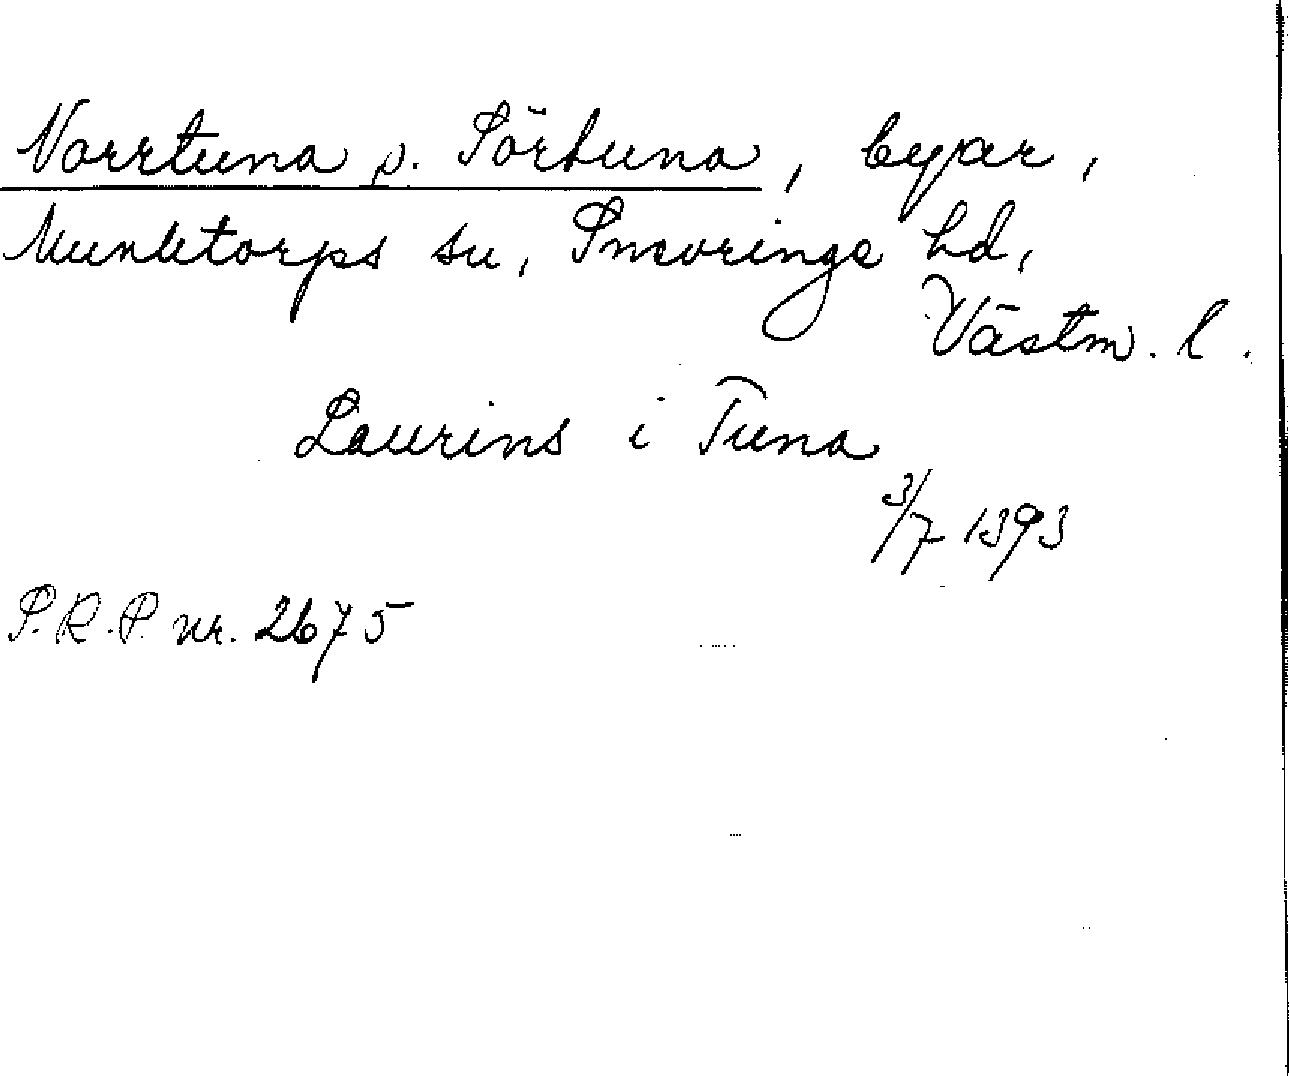 Norrtuna o. Sörtuna, byar,
Munktorps sn, Snevringe hd,
Västm. l.
Laurins i Tuna
3/7 1393
S.R.P. nr. 2675